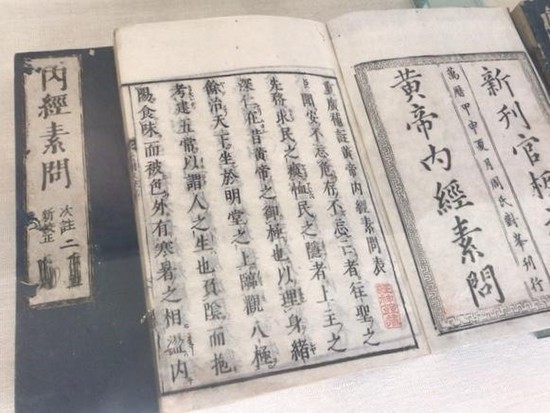 新刊官板
萬曆甲申夏月周氏對峯刊行
黃帝內經素問
重廣補註黃帝內經素問表
臣聞安不忘危存不忘亡者往聖之
先務求民之瘼恤民之隱者上主之
深仁在昔黃帝之御極也以理身緒
餘治天下坐於明堂之上臨觀八極
考建五常以謂人之生也負陰而抱
陽食味而被色外有寒暑之相盪內
內經素問
次註
新校正
二